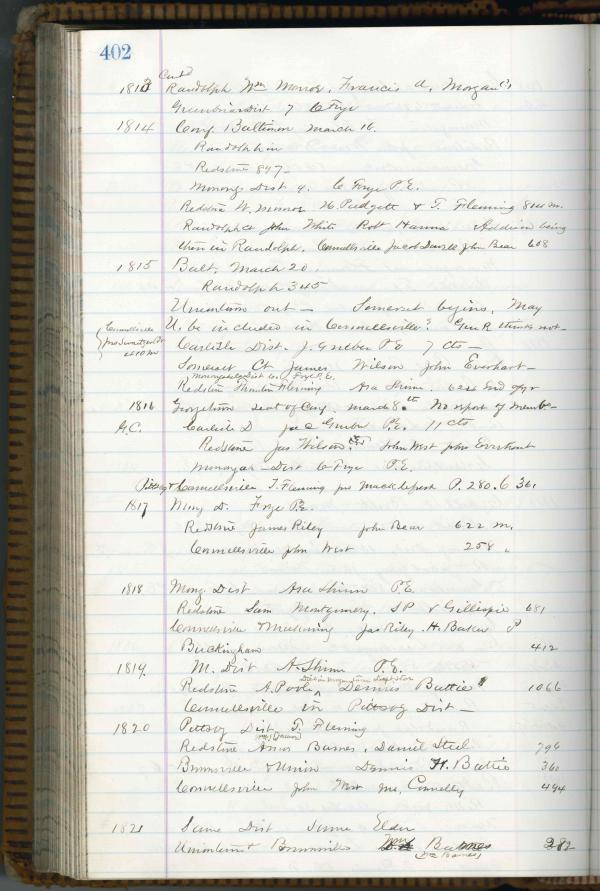 402
Cont'd
1813 Randolph Wm Monroe, Francis A. Morgan
Greenbrier Dist 7 C Frye
1814 Conf Baltimore March 16.
Randolph in
Redstone 847
Monong Dist 4. C. Frye P.E.
Redstone W. Monroe N. Pudgett & T. Fleming 814 m.
Randolph Ct John White Robt Hanna Addison being
then in Randolph. Connellsville Jacob John Bear 608
1815 Balt. March 20.
Randolph 345
Uniontown out — Somerset begins. May
U. be included in Connellsville? Gen R thinks not
Connellsville
410 m
Carlisle Dist. J. Gruber P.E. 7 cts —
Somerset Ct James Wilson John Everhart —
Monongahela Dist C. Frye P.E.
Redstone Thornton Fleming Asa Shinn. 624 End of yr
1816 Georgetown seat of Conf. March 8th No report of membs —
G.C. Carlisle D Jac Gruber P.E. 11 cts
Redstone Jas Wilson John West John Everhart
Monogah — Dist C Frye P.E.
Pittsbg & Connellsville T. Fleming P. 280. C 361
1817 Mong D. Frye P.E.
Redstone James Riley John Bear 622 m.
Connellsville John West 258 "
1818 Mong. Dist Asa Shinn P.E.
Redstone Sam Montgomery, S P & Gillespie 681
Connellsville & Mahoning Jas Riley. H. Baker P
Buckingham 412
1819. M. Dist A. Shinn P.E.
Redstone A. Poole, Dennis Battie 1066
Connellsville in Pittsbg Dist —
1820 Pittsbg Dist T. Fleming
Redstone Amos Barnes, Daniel Steel
Brownsville & Union Dennis H. Battie 360
Connellsville John West Mc Connelly 494
1821 Same Dist Same Elder
Uniontown & Brownsville Wm Barnes 282
(Wm Barnes)